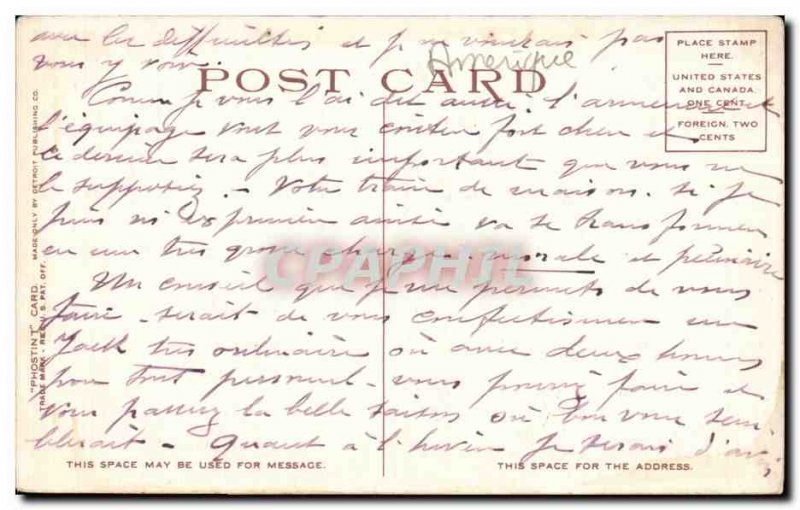 avec les difficultés et je ne voudrais pas
vous y voir.
Amérique
POST CARD
PLACE STAMP
HERE.
UNITED STATES
AND CANADA
ONE CENT
FOREIGN, TWO
CENTS
Comme je vous l'ai dit aussi l'armement et
l'équipage vont vous coûter fort cher et
ce dernier sera plus important que vous ne
le supposiez - Votre train de maison, si je
puis m'exprimer ainsi va se transformer
en une très grosse charge - morale et pécuniaire
Un conseil que je me permets de vous
faire - serait de vous
Yacht très ordinaire où avec deux hommes
pour tout personnel - vous pourriez faire et
vous passer la belle saison où bon vous sem
blerait - Quant à l'hiver je serais d'avis
"PHOSTINT" CARD.
TRADE MARK - REG. U. S. PAT. OFF.
MADE ONLY BY DETROIT PUBLISHING CO.
CPAPHIL
THIS SPACE MAY BE USED FOR MESSAGE.
THIS SPACE FOR THE ADDRESS.